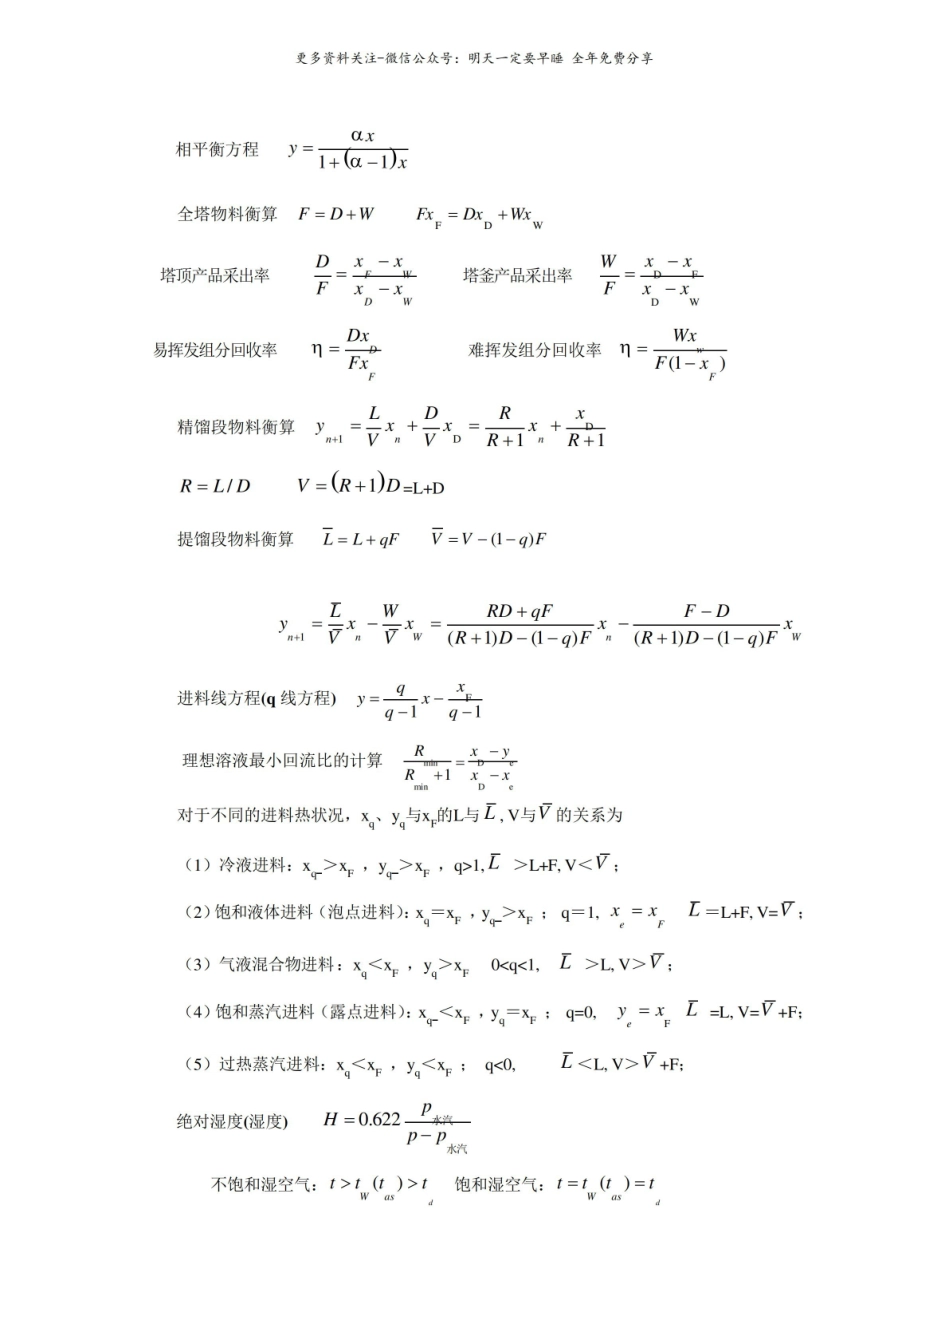 更多资料关注-微信公众号：明天一定要早睡 全年免费分享
相平衡方程 y = αx / (1 + (α − 1)x)
全塔物料衡算 F = D + W Fx_F = Dx_D + Wx_W
塔顶产品采出率 D/F = (x_F − x_W)/(x_D − x_W) 塔釜产品采出率 W/F = (x_D − x_F)/(x_D − x_W)
易挥发组分回收率 η = Dx_D/Fx_F 难挥发组分回收率 η = Wx_w/F(1 − x_F)
精馏段物料衡算 y_{n+1} = (L/V)x_n + (D/V)x_D = (R/(R + 1))x_n + x_D/(R + 1)
R = L / D V = (R + 1)D=L+D
提馏段物料衡算 L̅ = L + qF V̅ = V − (1 − q)F
y_{n+1} = (L̅/V̅)x_n − (W/V̅)x_W = ((RD + qF)/((R + 1)D − (1 − q)F))x_n − ((F − D)/((R + 1)D − (1 − q)F))x_W
进料线方程(q 线方程) y = (q/(q − 1))x − x_F/(q − 1)
理想溶液最小回流比的计算 R_min/(R_min + 1) = (x_D − y_e)/(x_D − x_e)
对于不同的进料热状况，x_q、y_q与x_F的L与 L̅ , V与 V̅ 的关系为
（1）冷液进料：x_q＞x_F ，y_q＞x_F ，q>1, L̅ ＞L+F, V＜V̅；
（2）饱和液体进料（泡点进料）：x_q＝x_F ，y_q＞x_F ； q＝1, x_e = x_F L̅＝L+F, V=V̅；
（3）气液混合物进料：x_q＜x_F ，y_q＞x_F 0<q<1, L̅ ＞L, V＞V̅；
（4）饱和蒸汽进料（露点进料）：x_q＜x_F ，y_q＝x_F ； q=0, y_e = x_F L̅ =L, V=V̅ +F;
（5）过热蒸汽进料：x_q＜x_F ，y_q＜x_F ； q<0, L̅＜L, V＞V̅ +F;
绝对湿度(湿度) H = 0.622 p_水汽/(p − p_水汽)
不饱和湿空气：t > t_W (t_as) > t_d 饱和湿空气：t = t_W (t_as) = t_d